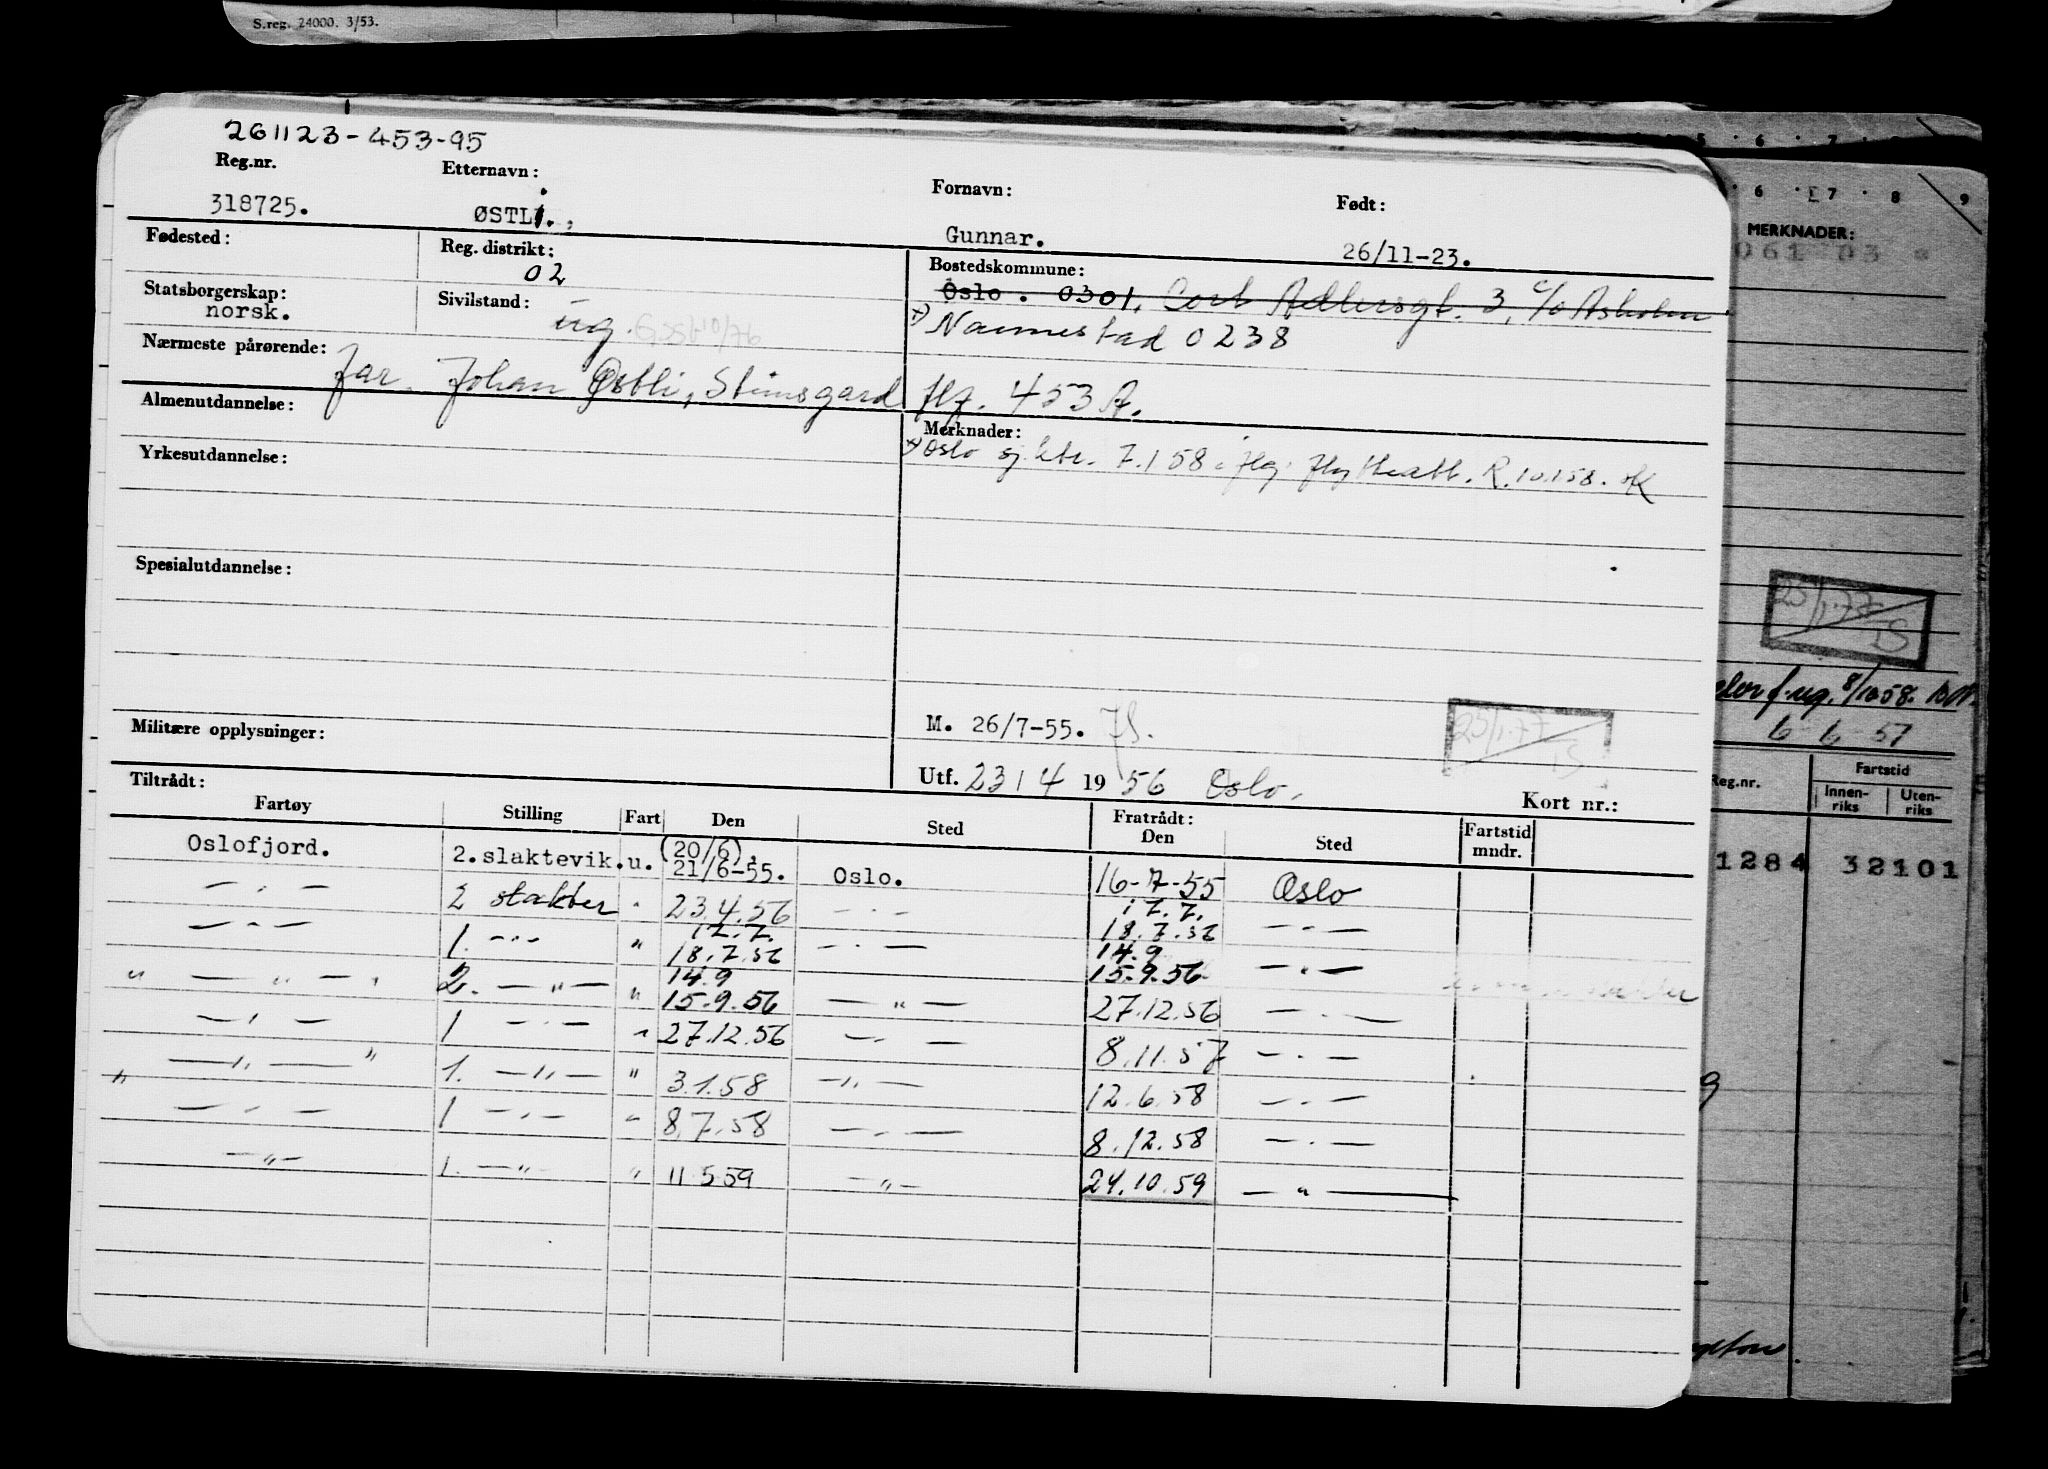 S.reg. 24000. 3/53.
261123-453-95
Reg.nr. Etternavn: Fornavn: Født:
318725. ØSTLi., Gunnar. 26/11-23.
Fødested: Reg. distrikt: 02 Bostedskommune:
Oslo . 0301, Cort Adlersgt. 3, c/o Asholm
Statsborgerskap: norsk. Sivilstand: ug. x) Nannestad 0238
Nærmeste pårørende: far. Johan Østli, Stensgard
Almenutdannelse: 453 A.
Merknader:
x) Oslo sj.ktr. 7.1 58 R. 10.1 58.
Yrkesutdannelse:
Spesialutdannelse:
M. 26/7-55.
25/1-77
Militære opplysninger:
Utf. 23/4 1956 Oslo. Kort nr.:
Tiltrådt: Fratrådt:
Fartøy Stilling Fart Den Sted Den Sted Fartstid mndr.
Oslofjord. 2.slaktevik. u. (20/6). 21/6-55. Oslo. 16-7-55 Oslo
— " — 2 slakter " 23.4.56 — " — 17.7. 18.7.56 — " —
— " — 1. — " — " 17.7. 18.7.56 — " — 14.9 15.9.56 — " —
" — " — " 2. — " — " 14.9 15.9.56 — " — 27.12.56 — " —
— " — 1 — " — " 27.12.56 — " — 8.11.57 — " —
" — " — " 1. — " — " 3.1.58 — " — 12.6.58 — " —
— " — 1 — " — " 8.7.58 — " — 8.12.58 — " —
— " — 1. — " — " 11.5 59 — " — 24.10.59 — " —
5 6 7
6 7 8 9
MERKNADER:
061 03
25/1-77
f. ug. 8/10 58.
6-6-57
Reg.nr. Fartstid
Innenriks Utenriks
1284 32101